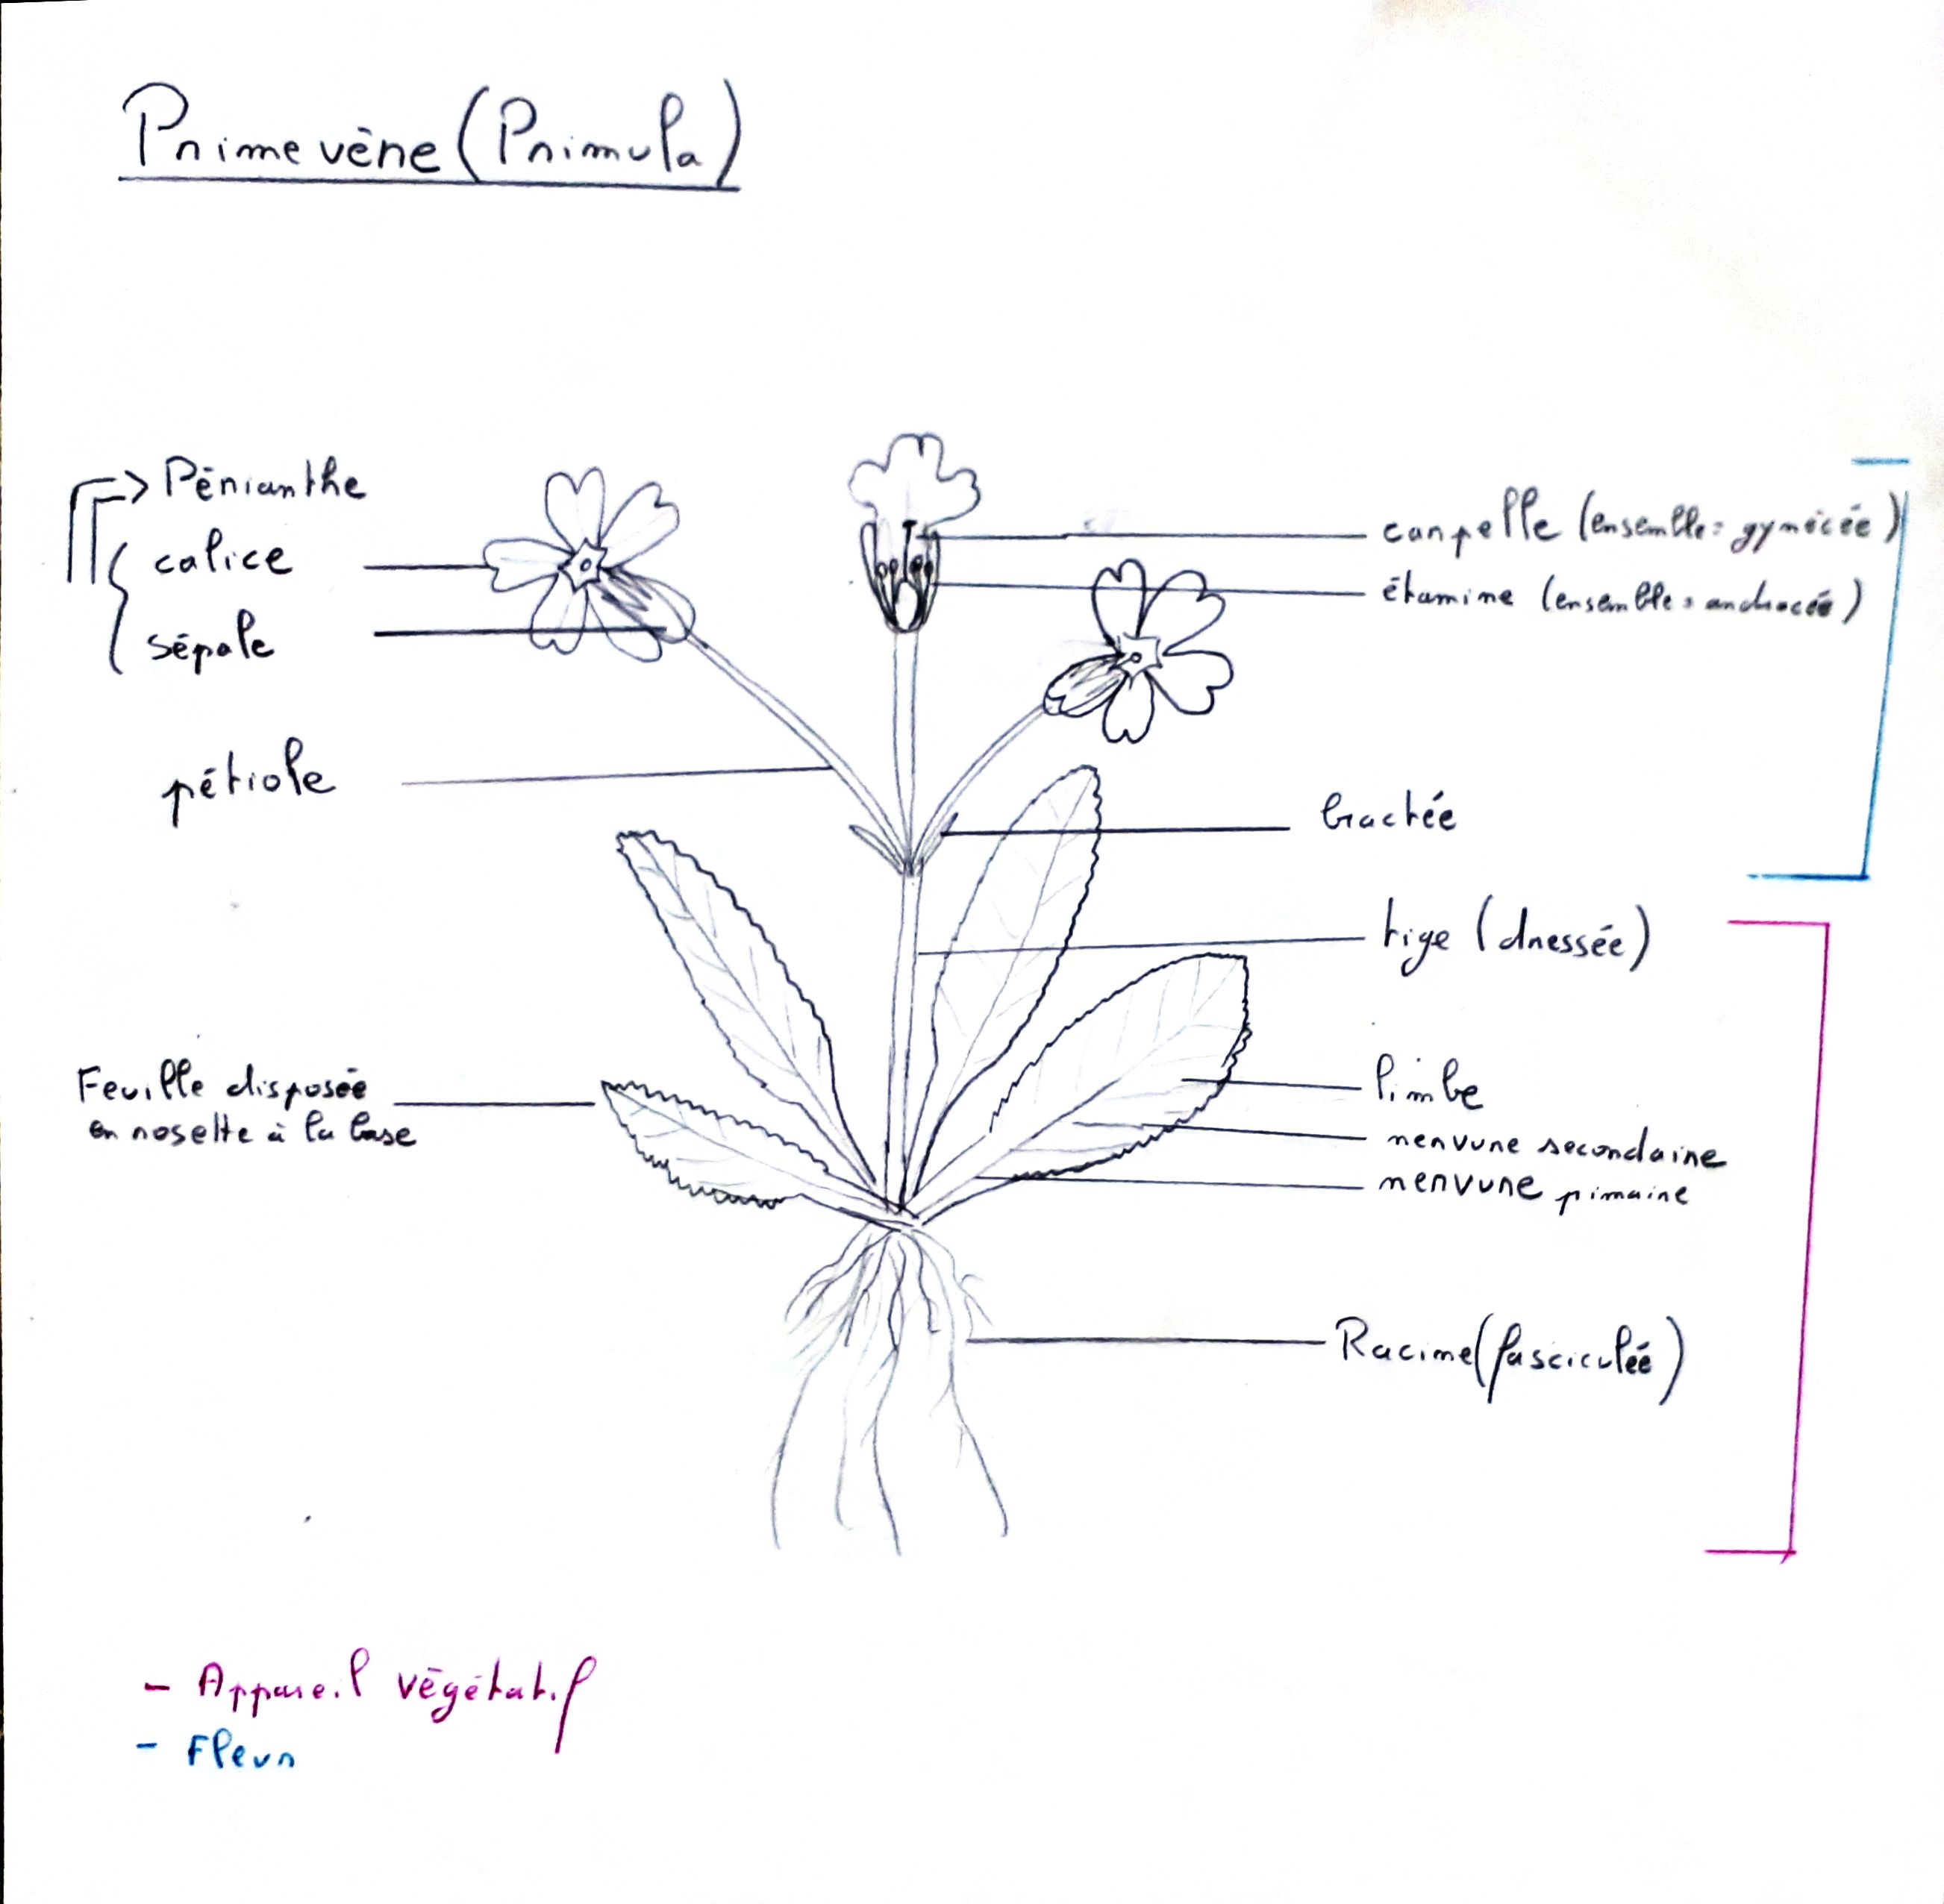 Primevère (Primula)
-> Périanthe
calice
sépale
pétiole
Feuille disposée
en rosette à la base
carpelle (ensemble = gynécée)
étamine (ensemble = androcée)
bractée
tige (dressée)
limbe
nervure secondaire
nervure pimaire
Racine (fasciculée)
- Appareil végétatif
- Fleur